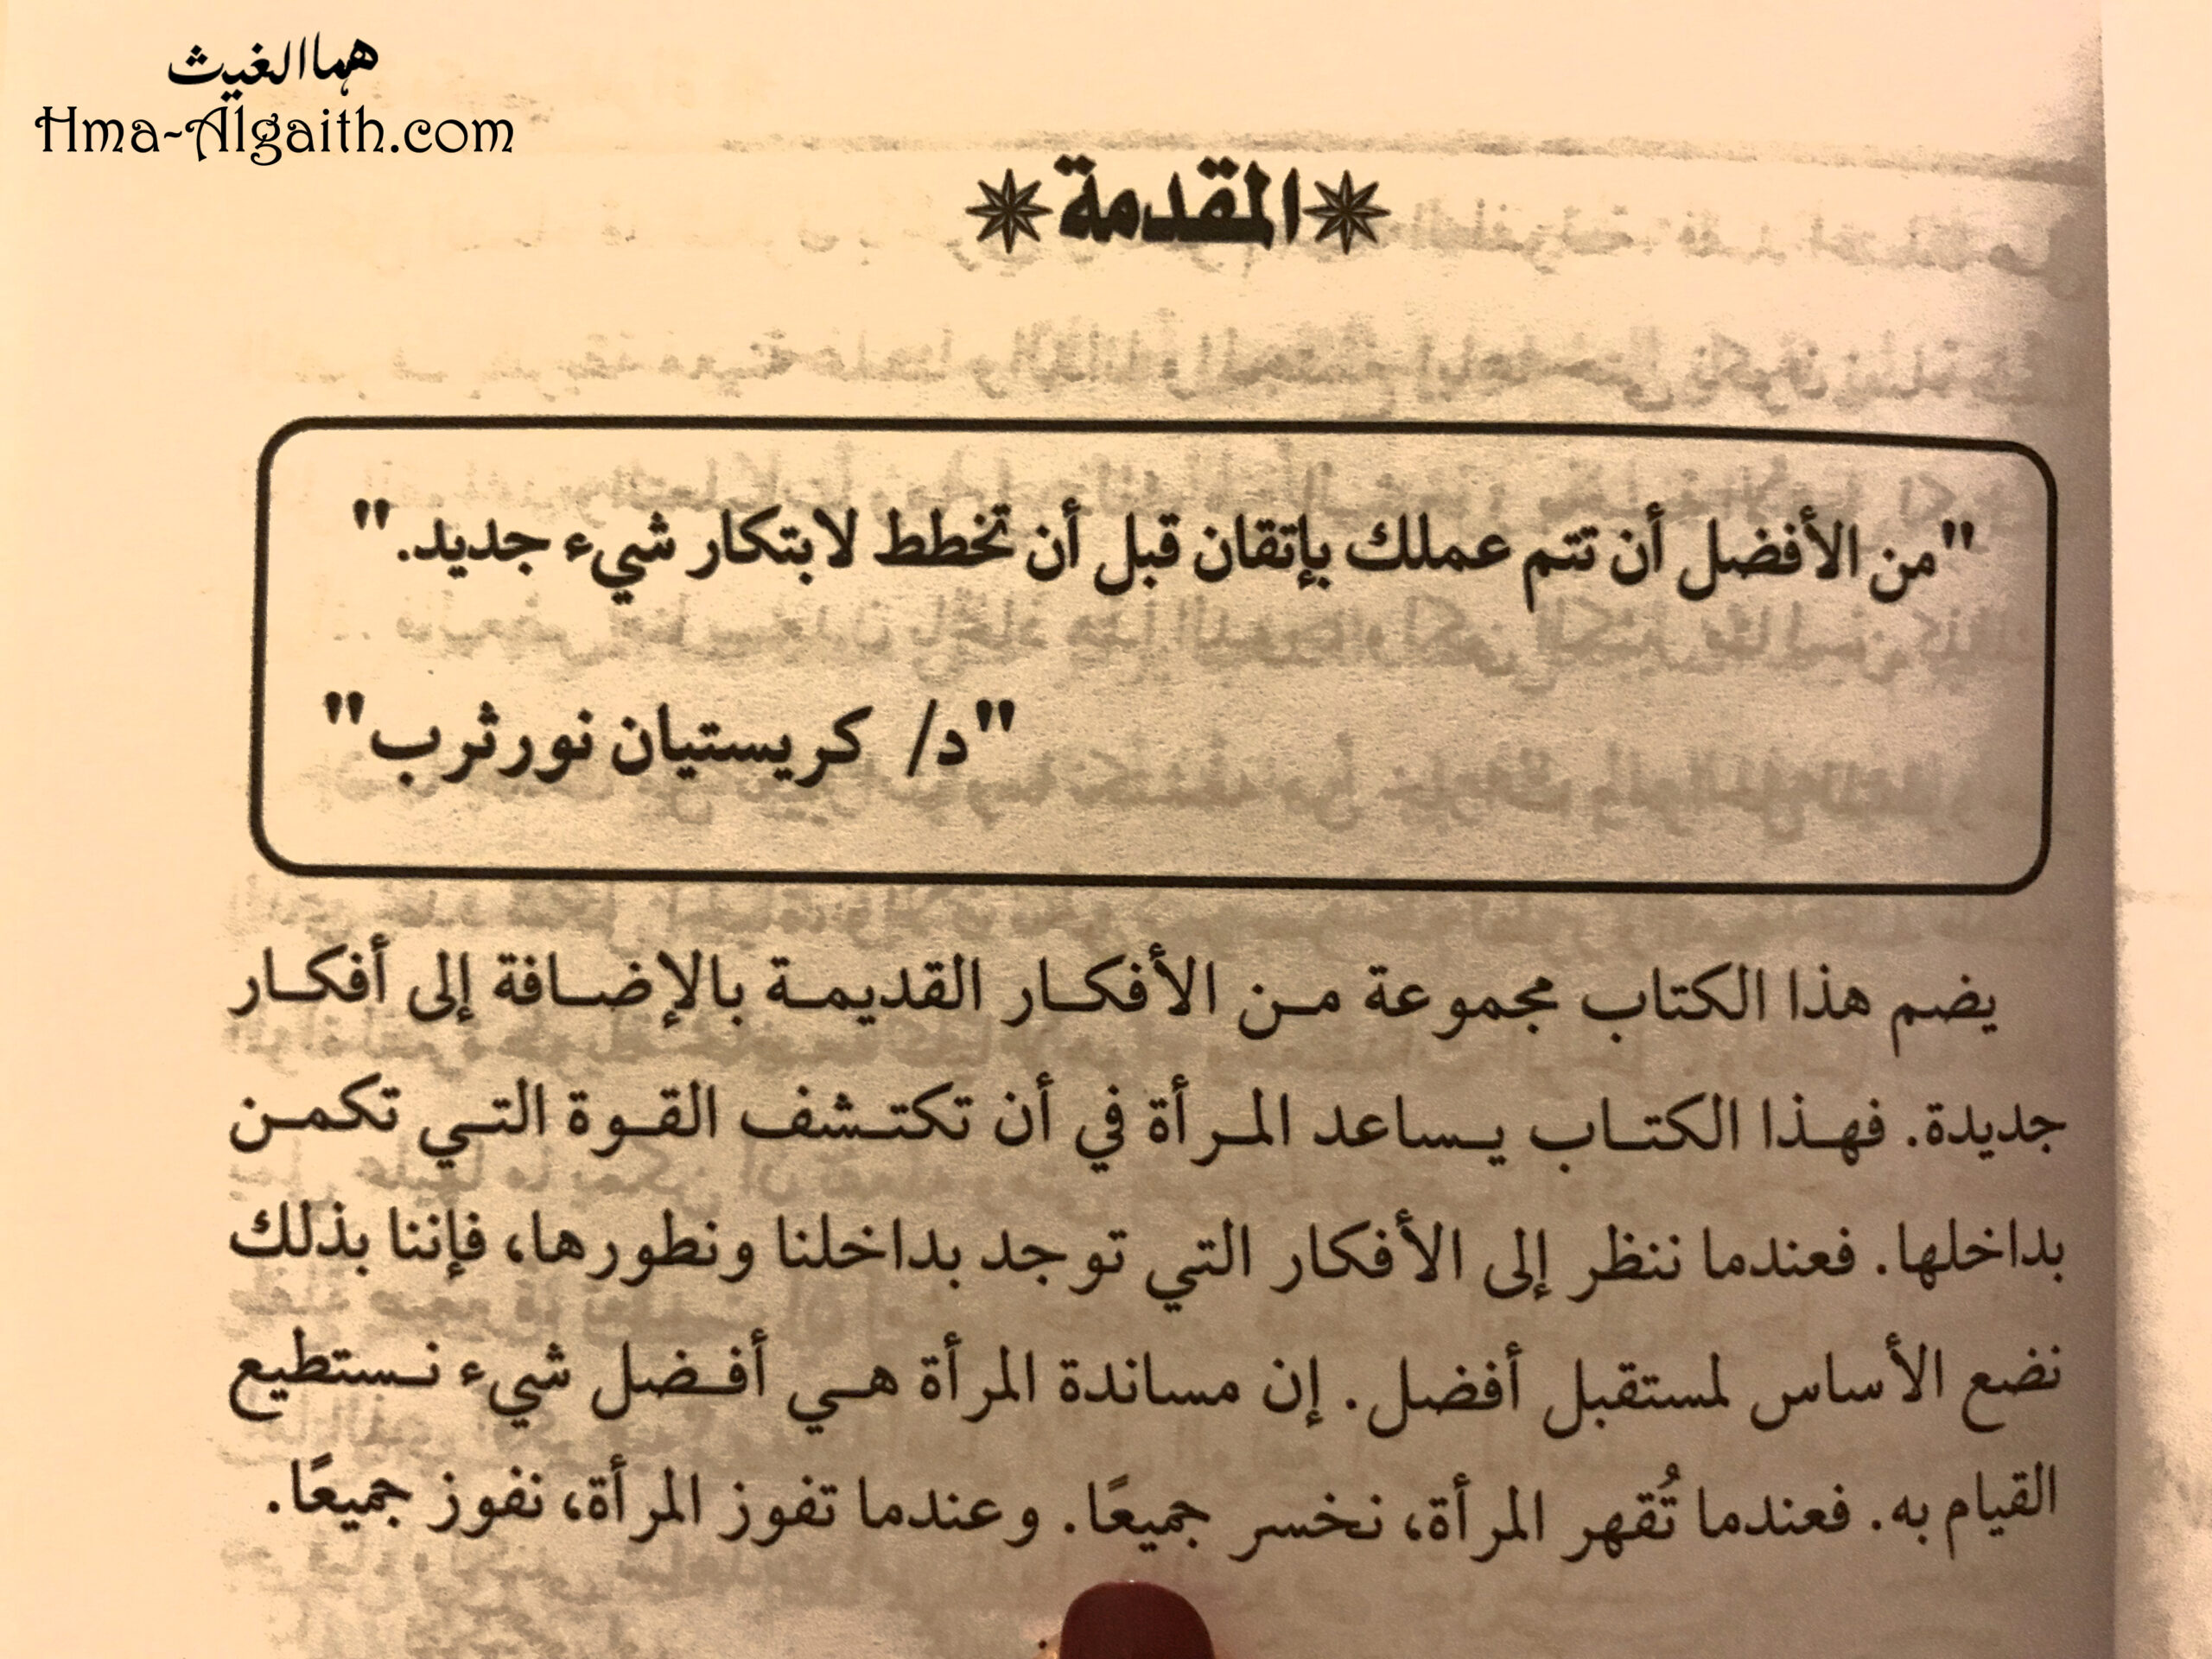 هما الغيث
Hma-Algaith.com
المقدمة
"من الأفضل أن تتم عملك بإتقان قبل أن تخطط لابتكار شيء جديد."
"د/ كريستيان نورثرب"
يضم هذا الكتاب مجموعة من الأفكار القديمة بالإضافة إلى أفكار
جديدة. فهذا الكتاب يساعد المرأة في أن تكتشف القوة التي تكمن
بداخلها. فعندما ننظر إلى الأفكار التي توجد بداخلنا ونطورها، فإننا بذلك
نضع الأساس لمستقبل أفضل. إن مساندة المرأة هي أفضل شيء نستطيع
القيام به. فعندما تُقهر المرأة، نخسر جميعًا. وعندما تفوز المرأة، نفوز جميعًا.